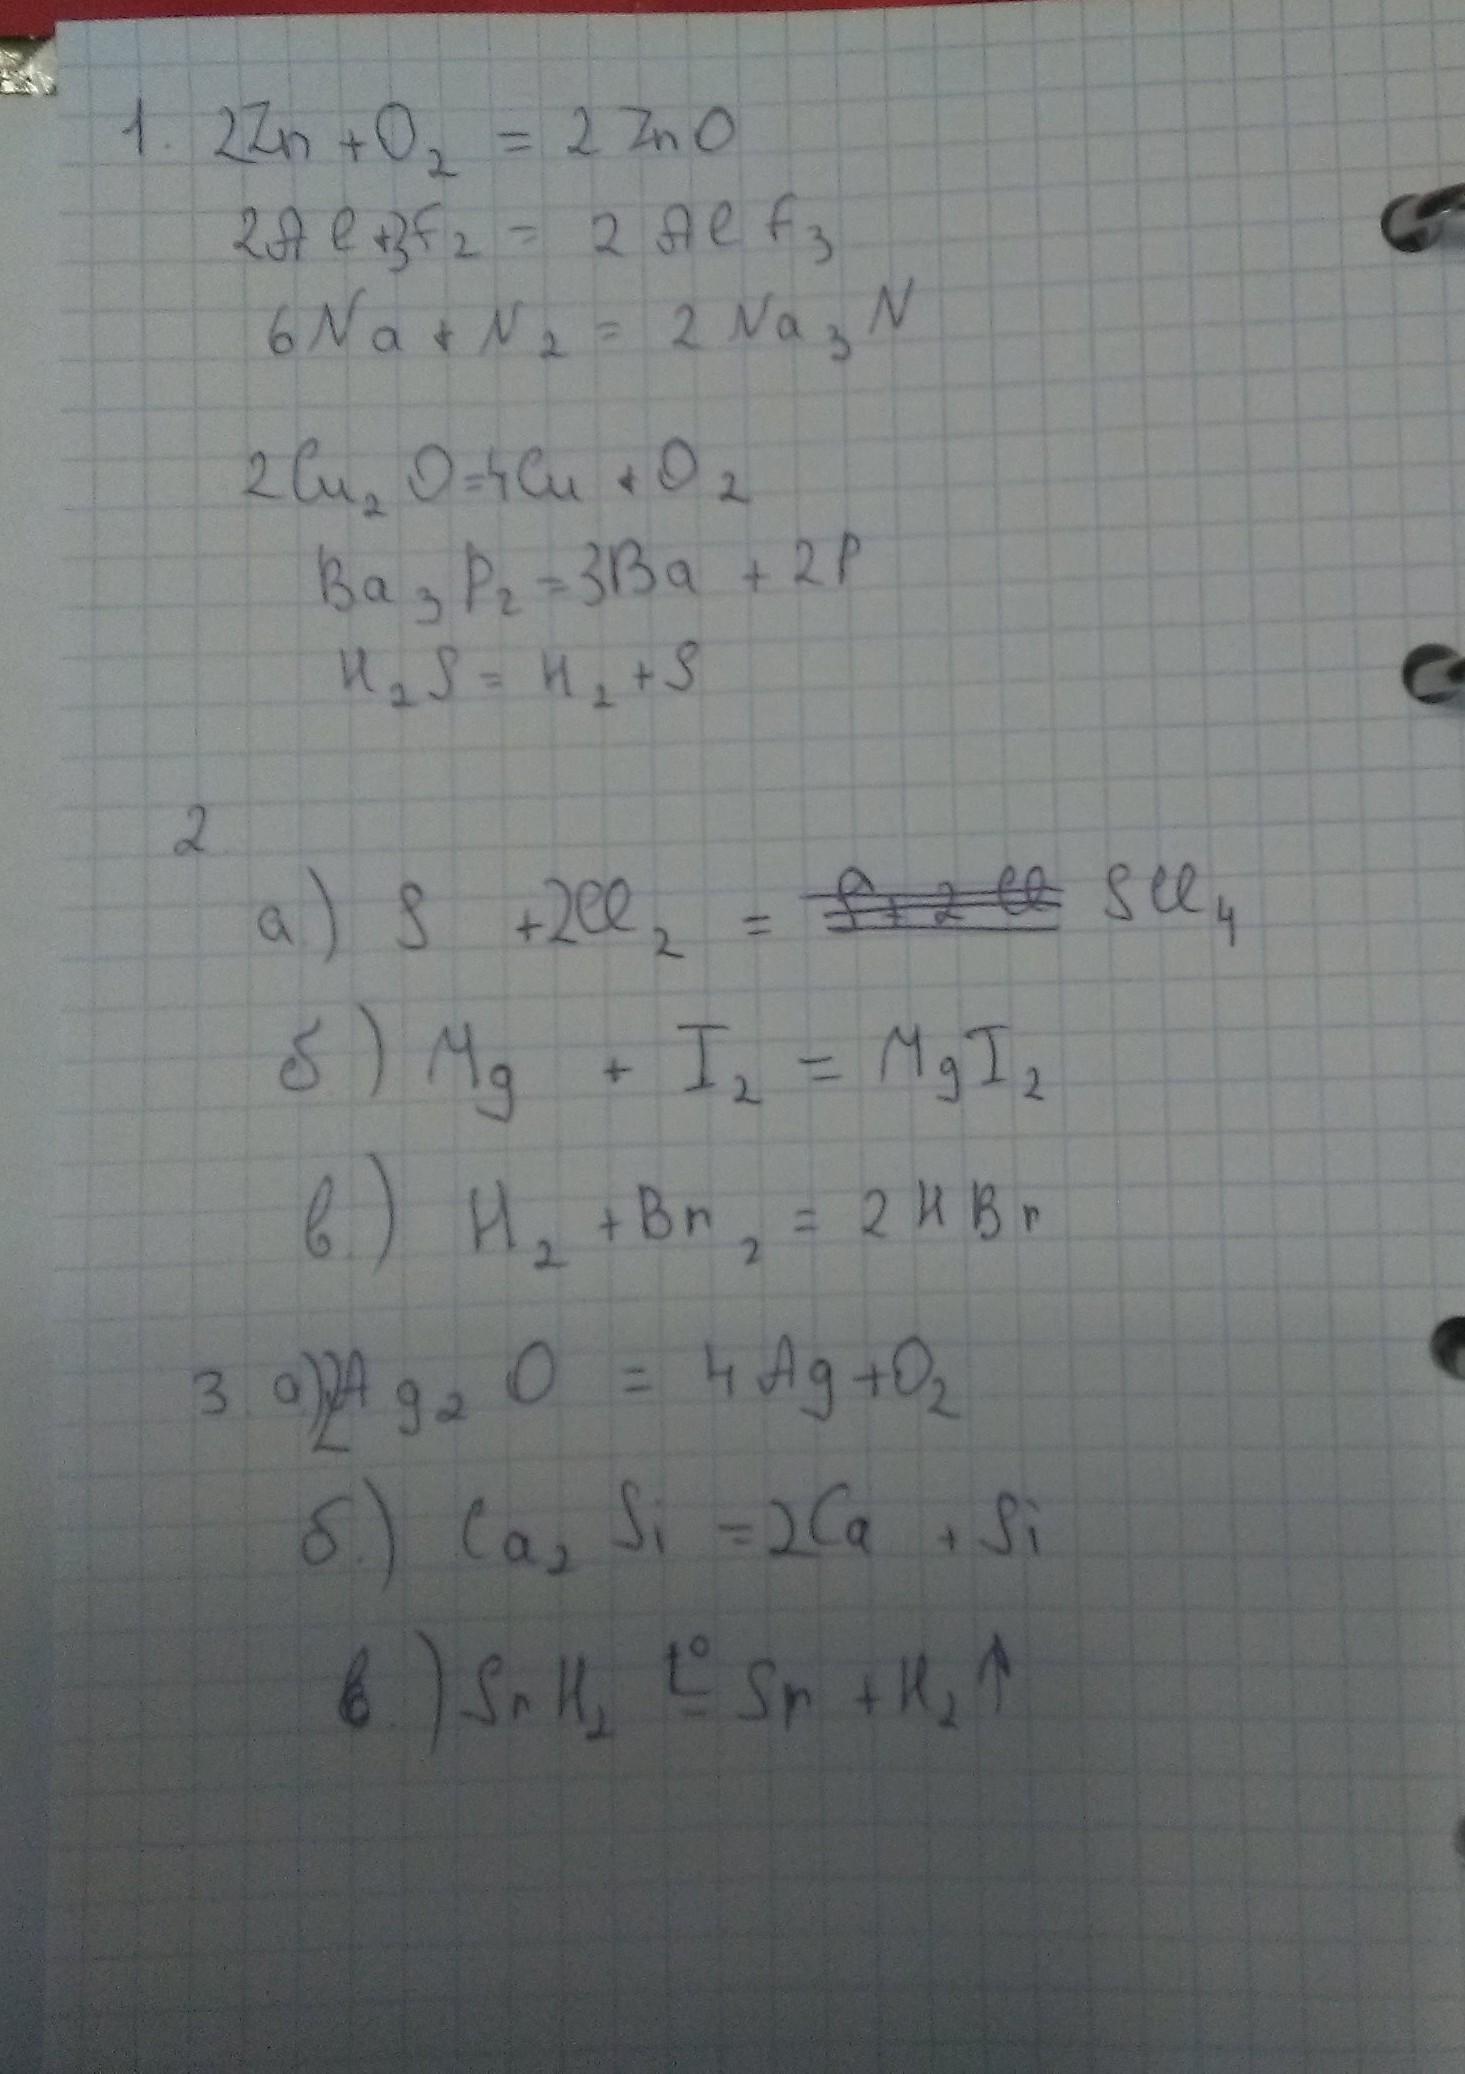 1. 2Zn + O₂ = 2 ZnO
2Al + 3F₂ = 2 AlF₃
6Na + N₂ = 2 Na₃N
2Cu₂O = 4Cu + O₂
Ba₃P₂ = 3Ba + 2P
H₂S = H₂ + S
2
а) S + 2Cl₂ = S + 2 Cl SCl₄
б.) Mg + I₂ = MgI₂
в.) H₂ + Br₂ = 2HBr
3. а) 2Ag₂O = 4Ag + O₂
б.) Ca₂Si = 2Ca + Si
в.) SrH₂ t° = Sr + H₂↑